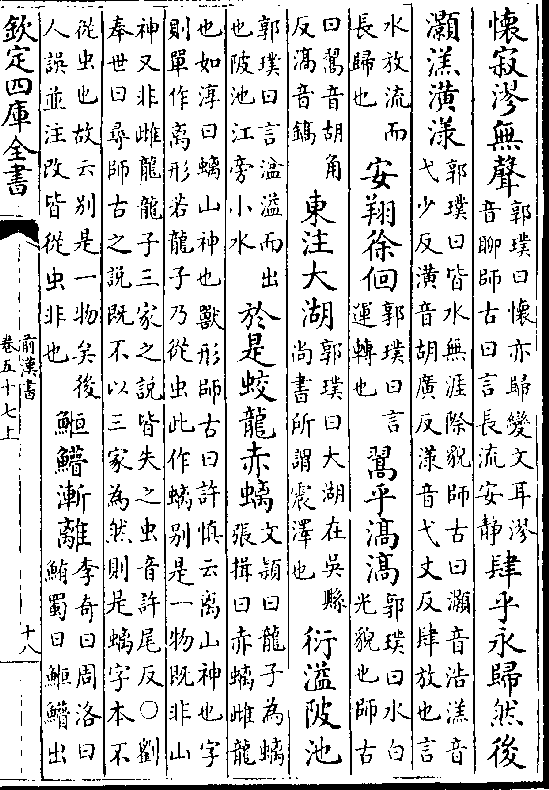 懷寂漻無聲郭璞曰懷亦歸變文耳漻音聊師古曰言長流安静肆乎永歸然後
灝溔潢漾郭璞曰皆水無涯際貌師古曰灝音浩溔音弋少反潢音胡廣反漾音弋丈反肆放也言
水放流而長歸也安翔徐佪郭璞曰言運轉也翯乎滈滈郭璞曰水白光貌也師古
曰翯音胡角反滈音鎬東注大湖郭璞曰大湖在吳縣尚書所謂震澤也衍溢陂池
郭璞曰言湓溢而出也陂池江旁小水於是蛟龍赤螭文頴曰龍子為螭張揖曰赤螭雌龍
也如淳曰螭山神也獸形師古曰許慎云离山神也字則單作离形若龍子乃從虫此作螭别是一物既非山
神又非雌龍龍子三家之說皆失之虫音許尾反○劉奉世曰尋師古之說既不以三家為然則是螭字本不
從虫也故云别是一物矣後人誤並注改皆從虫非也䱭䲛漸離李奇曰周洛曰鮪蜀曰䱭䲛出
欽定四庫全書
前漢書
卷五十七上
十八